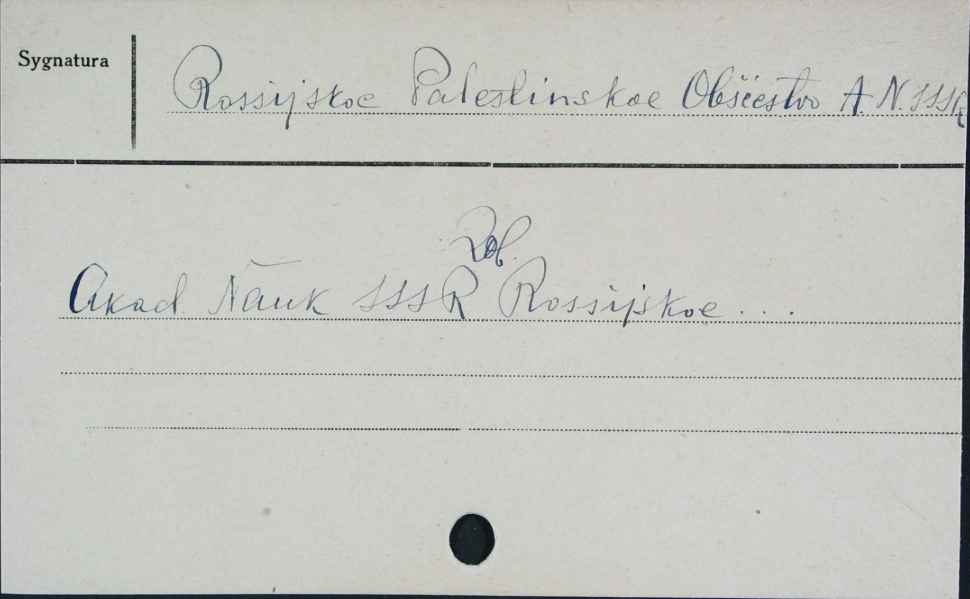 Sygnatura
Rossijskoe Palestinskoe Obščestvo A.N.SSSR
Zob.
Akad. Nauk SSSR Rossijskoe ...